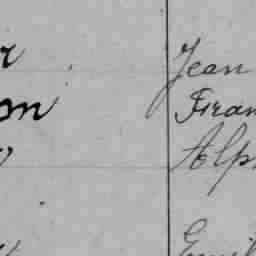 r Jean
m Fran
Alp
Emil